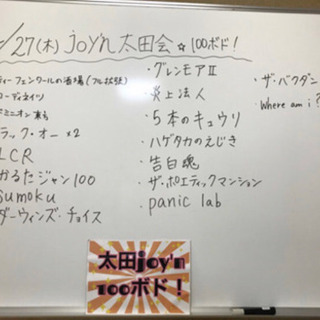 /27(木) joy'n 太田会☆100ボド!
ティーフェンタールの酒場(フル拡張)
コーディネイツ
ドミニオン
ラック・オー ×2
LCR
かるたジャン100
sumoku
ダーウィンズ・チョイス
・グレンモアⅡ
・炎上法人
・5本のキュウリ
・ハゲタカのえじき
・告白魂
・ザ・ポエティックマンション
・panic lab
・ザ・バクダン
・Where am i?
太田joy'n
100ボド!